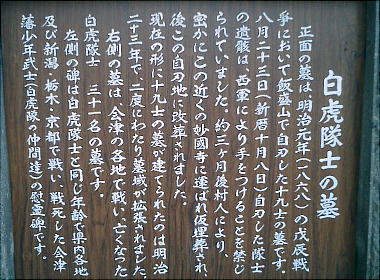 白虎隊士の墓
正面の墓は、明治元年(一八六八)の戊辰戦
争において飯盛山で自刃した十九士の墓です。
八月二十三日(新暦十月八日)自刃した隊士
の遺骸は、西軍により手をつけることを禁じ
られていました。約三ヶ月後村人により、
密かにこの近くの妙國寺に運ばれ仮埋葬され、
後この自刃地に改葬されました。
現在の形に十九士の墓が建てられたのは明治
二十三年で、二度にわたり墓域が拡張されました。
右側の墓は、会津の各地で戦い、亡くなった
白虎隊士 三十一名の墓です。
左側の碑は白虎隊士と同じ年齢で県内各地
及び新潟・栃木・京都で戦い、戦死した会津
藩少年武士(白虎隊の仲間達)の慰霊碑です。